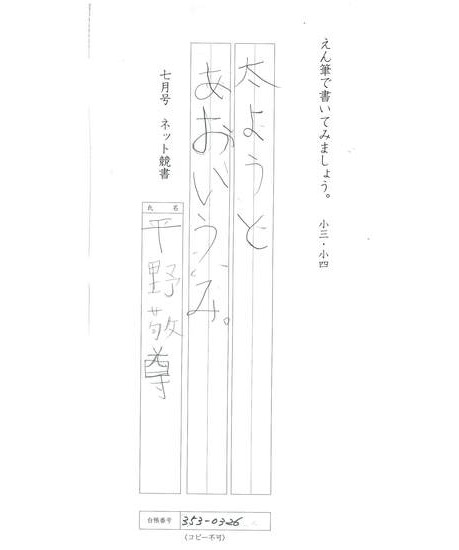 えん筆で書いてみましょう。 小三・小四
太ようと
あおいうみ。
七月号 ネット競書
氏名
平野敬尊
台帳番号 353-0326
(コピー不可)